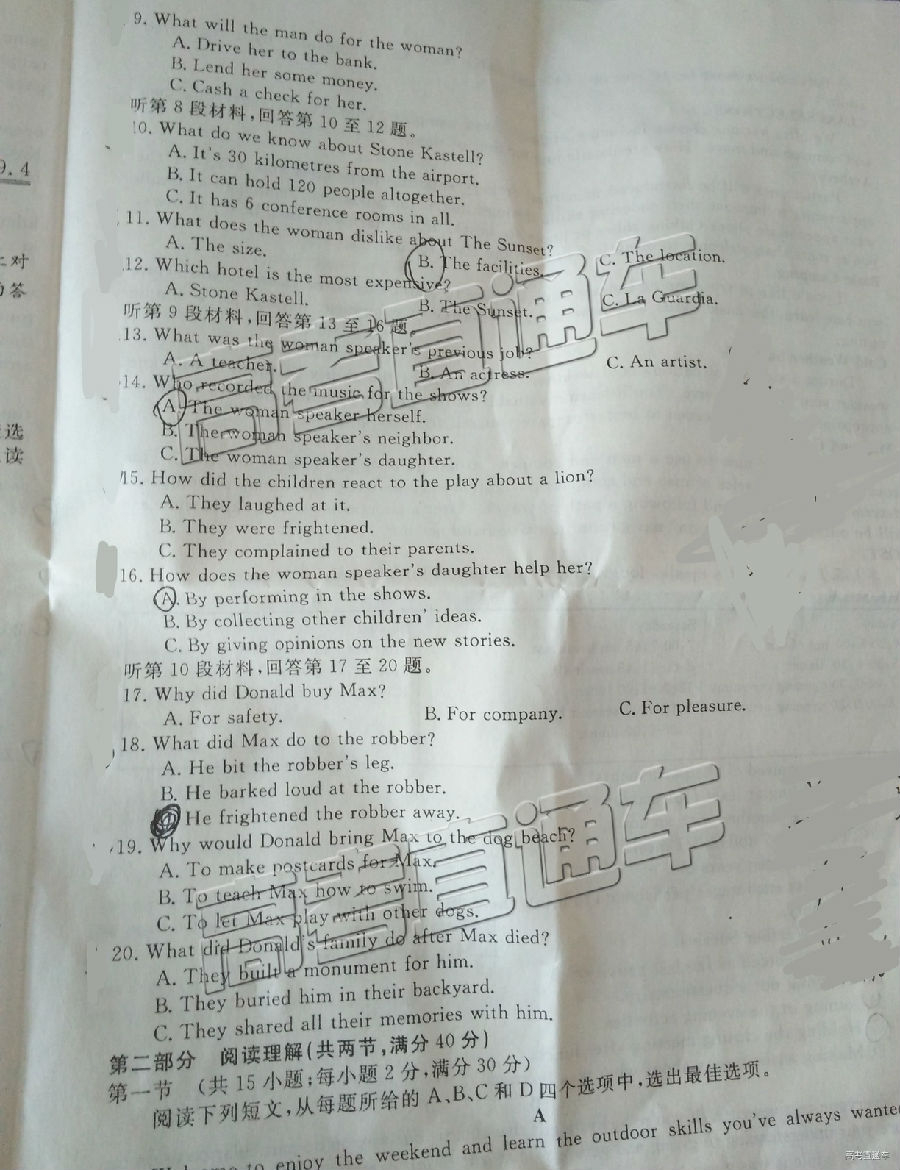 9. What will the man do for the woman?
A. Drive her to the bank.
B. Lend her some money.
C. Cash a check for her.
听第 8 段材料，回答第 10 至 12 题。
10. What do we know about Stone Kastell?
A. It's 30 kilometres from the airport.
B. It can hold 120 people altogether.
C. It has 6 conference rooms in all.
11. What does the woman dislike about The Sunset?
A. The size. B. The facilities. C. The location.
12. Which hotel is the most expensive?
A. Stone Kastell. B. The Sunset. C. La Guardia.
听第 9 段材料，回答第 13 至 16 题。
13. What was the woman speaker's previous job?
A. A teacher. B. An actress. C. An artist.
14. Who recorded the music for the shows?
A. The woman speaker herself.
B. The woman speaker's neighbor.
C. The woman speaker's daughter.
15. How did the children react to the play about a lion?
A. They laughed at it.
B. They were frightened.
C. They complained to their parents.
16. How does the woman speaker's daughter help her?
A. By performing in the shows.
B. By collecting other children' ideas.
C. By giving opinions on the new stories.
听第 10 段材料，回答第 17 至 20 题。
17. Why did Donald buy Max?
A. For safety. B. For company. C. For pleasure.
18. What did Max do to the robber?
A. He bit the robber's leg.
B. He barked loud at the robber.
He frightened the robber away.
19. Why would Donald bring Max to the dog beach?
A. To make postcards for Max.
B. To teach Max how to swim.
C. To let Max play with other dogs.
20. What did Donald's family do after Max died?
A. They built a monument for him.
B. They buried him in their backyard.
C. They shared all their memories with him.
第二部分 阅读理解（共两节，满分 40 分）
第一节 （共 15 小题；每小题 2 分，满分 30 分）
阅读下列短文，从每题所给的 A、B、C 和 D 四个选项中，选出最佳选项。
A
to enjoy the weekend and learn the outdoor skills you've always wanted
9.4
对
答
选
读
高考直通车
高考直通车
高考直通车